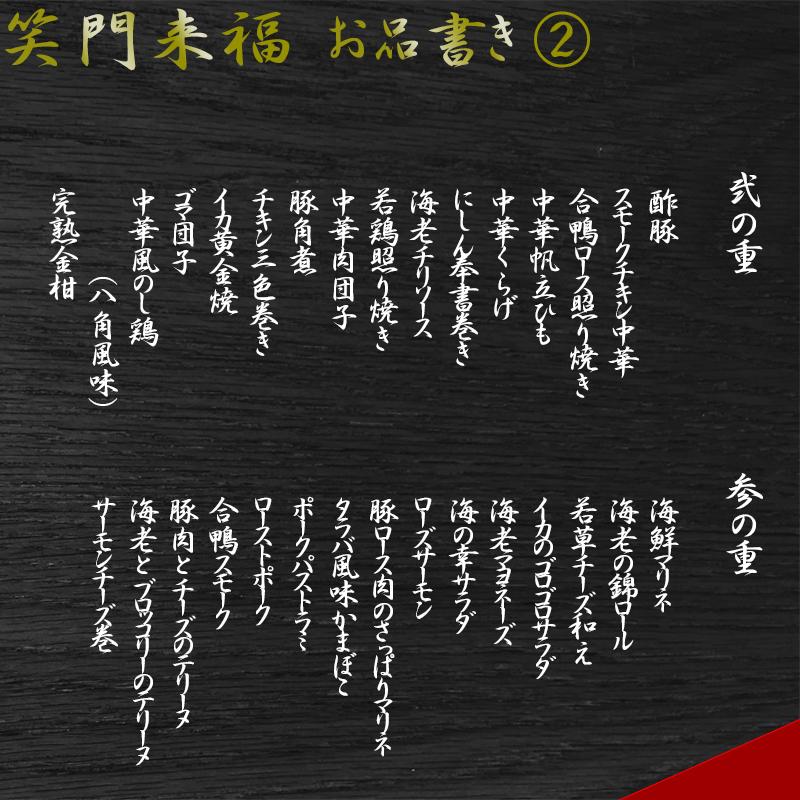 笑門来福 お品書き②
弐の重
酢豚
スモークチキン中華
合鴨ロース照り焼き
中華帆立ひも
中華くらげ
にしん奉書巻き
海老チリソース
若鶏照り焼き
中華肉団子
豚角煮
チキン三色巻き
イカ黄金焼
ゴマ団子
中華風のし鶏
（八角風味）
完熟金柑
参の重
海鮮マリネ
海老の錦ロール
若草チーズ和え
イカのゴロゴロサラダ
海老マヨネーズ
海の幸サラダ
ローズサーモン
豚ロース肉のさっぱりマリネ
タラバ風味かまぼこ
ポークパストラミ
ローストポーク
合鴨スモーク
豚肉とチーズのテリーヌ
海老とブロッコリーのテリーヌ
サーモンチーズ巻